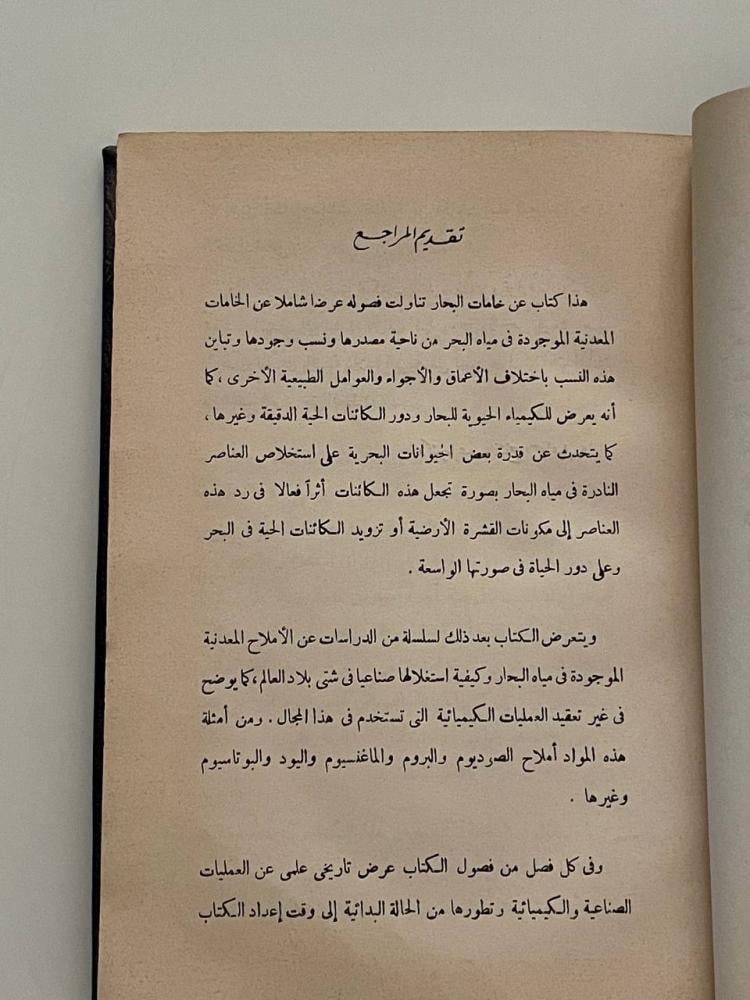 تقديم المراجع
هذا كتاب عن خامات البحار تناولت فصوله عرضا شاملا عن الخامات
المعدنية الموجودة فى مياه البحر من ناحية مصدرها ونسب وجودها وتباين
هذه النسب باختلاف الأعماق والأجواء والعوامل الطبيعية الأخرى ، كما
أنه يعرض للكيمياء الحيوية للبحار ودور الكائنات الحية الدقيقة وغيرها ،
كما يتحدث عن قدرة بعض الحيوانات البحرية على استخلاص العناصر
النادرة فى مياه البحار بصورة تجعل هذه الكائنات أثراً فعالا فى رد هذه
العناصر إلى مكونات القشرة الأرضية أو تزويد الكائنات الحية فى البحر
وعلى دور الحياة فى صورتها الواسعة .
ويتعرض الكتاب بعد ذلك لسلسلة من الدراسات عن الأملاح المعدنية
الموجودة فى مياه البحار وكيفية استغلالها صناعيا فى شتى بلاد العالم ، كما يوضح
فى غير تعقيد العمليات الكيميائية التى تستخدم فى هذا المجال . ومن أمثلة
هذه المواد أملاح الصرديوم والبروم والماغنسيوم واليود والبوتاسيوم
وغيرها .
وفى كل فصل من فصول الكتاب عرض تاريخى علمى عن العمليات
الصناعية والكيميائية رتطورها من الحالة البدائية إلى وقت إعداد الكتاب